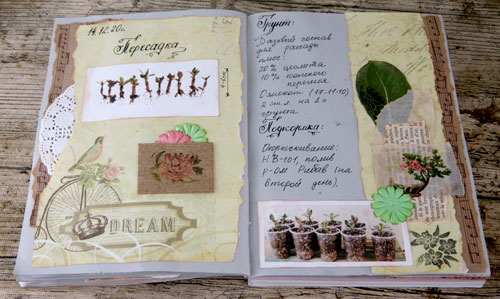 14.12.20г.
Пересадка
DREAM
Грунт:
Базовый состав
для рассады
плюс:
20% цеолита
10% конного
перегноя
Осмокот (11-11-18)
2 ст.л. на 5 л
грунта
Подкормка:
Опрыскивание:
НВ-101, полив
р-ом Рибав (на
второй день).